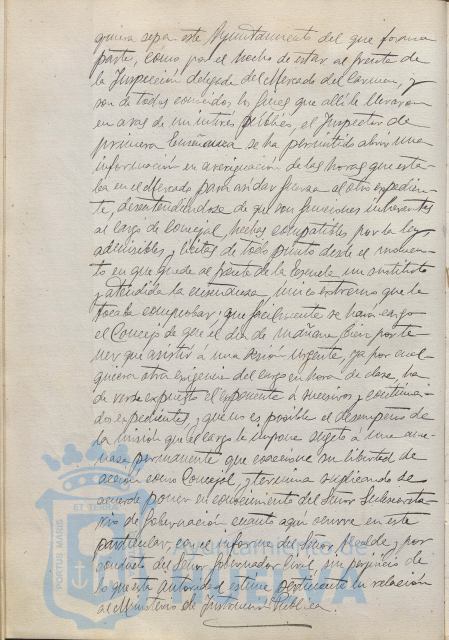 quiera sepa este Ayuntamiento del que forma
parte, como por el hecho de estar al frente de
la Inspección delegada del Mercado del Carmen, y
son de todos conocidos los fines que allí le llevaron
en aras de un interés público, el Inspector de
primera Enseñanza se ha permitido abrir una
información en averiguación de las horas que esta-
ba en el Mercado para así dar fuerza al otro expedien-
te, desentendiéndose de que son funciones inherentes
al cargo de Concejal, hechos compatibles por la ley
admisibles y lícitas de todo punto desde el momen-
to en que quede al frente de la Escuela un sustituto
y atendida la enseñanza, único extremo que le
tocaba comprobar; que fácilmente se hará cargo
el Concejo de que el día de mañana bien por te
ner que asistir á una sesión urgente, ya por cual-
quiera otra exigencia del cargo en hora de clase, ha
de verse expuesto el exponente á sucesivos y continua-
dos expedientes, y que no es posible el desempeño de
la misión que el cargo le impone sujeto á una ame-
naza permanente que coaccione su libertad de
acción como Concejal, y termina suplicando se
acuerde poner en conocimiento del Señor Subsecreta-
rio de Gobernación cuanto aquí ocurre en este
particular, con el informe del Señor Alcalde, y por
conducto del Señor Gobernador Civil, sin perjuicio de
lo que esta autoridad estime pertinente en relación
al Ministerio de Instrucción Pública.
PORTUS MARIS
ET TERRA
Ayuntamiento de
HUELVA